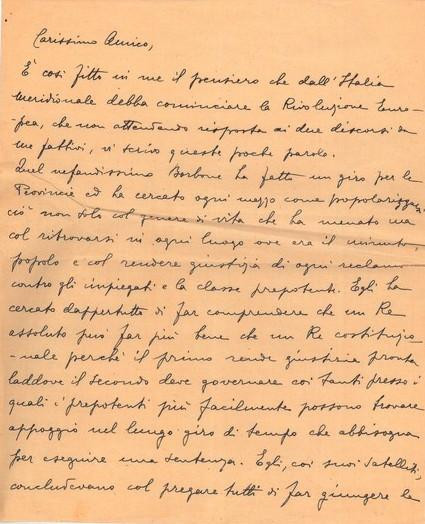 Carissimo Amico,
È così fitto in me il pensiero che dall'Italia
Meridionale debba cominciare la Rivoluzione Euro-
-pea, che non attendendo risposta ai due discorsi da
me fattivi, vi scrivo queste poche parole.
Quel nefandissimo Borbone ha fatto un giro per le
Provincie ed ha cercato ogni mezzo come popolarizzarsi
ciò non solo col genere di vita che ha menato ma
col ritrovarsi in ogni luogo ove era il minuto
popolo e col rendere giustizia di ogni reclamo
contro gli impiegati e la classe prepotenti. Egli ha
cercato dappertutto di far comprendere che un Re
assoluto può far più bene che un Re costituzio-
-nale perchè il primo rende giustizia pronta
laddove il secondo deve governare coi tanti presso i
quali i prepotenti più facilmente possono trovare
appoggio nel lungo giro di tempo che abbisogna
per eseguire una sentenza. Egli, coi suoi satelliti,
concludevano col pregare tutti di far giungere la